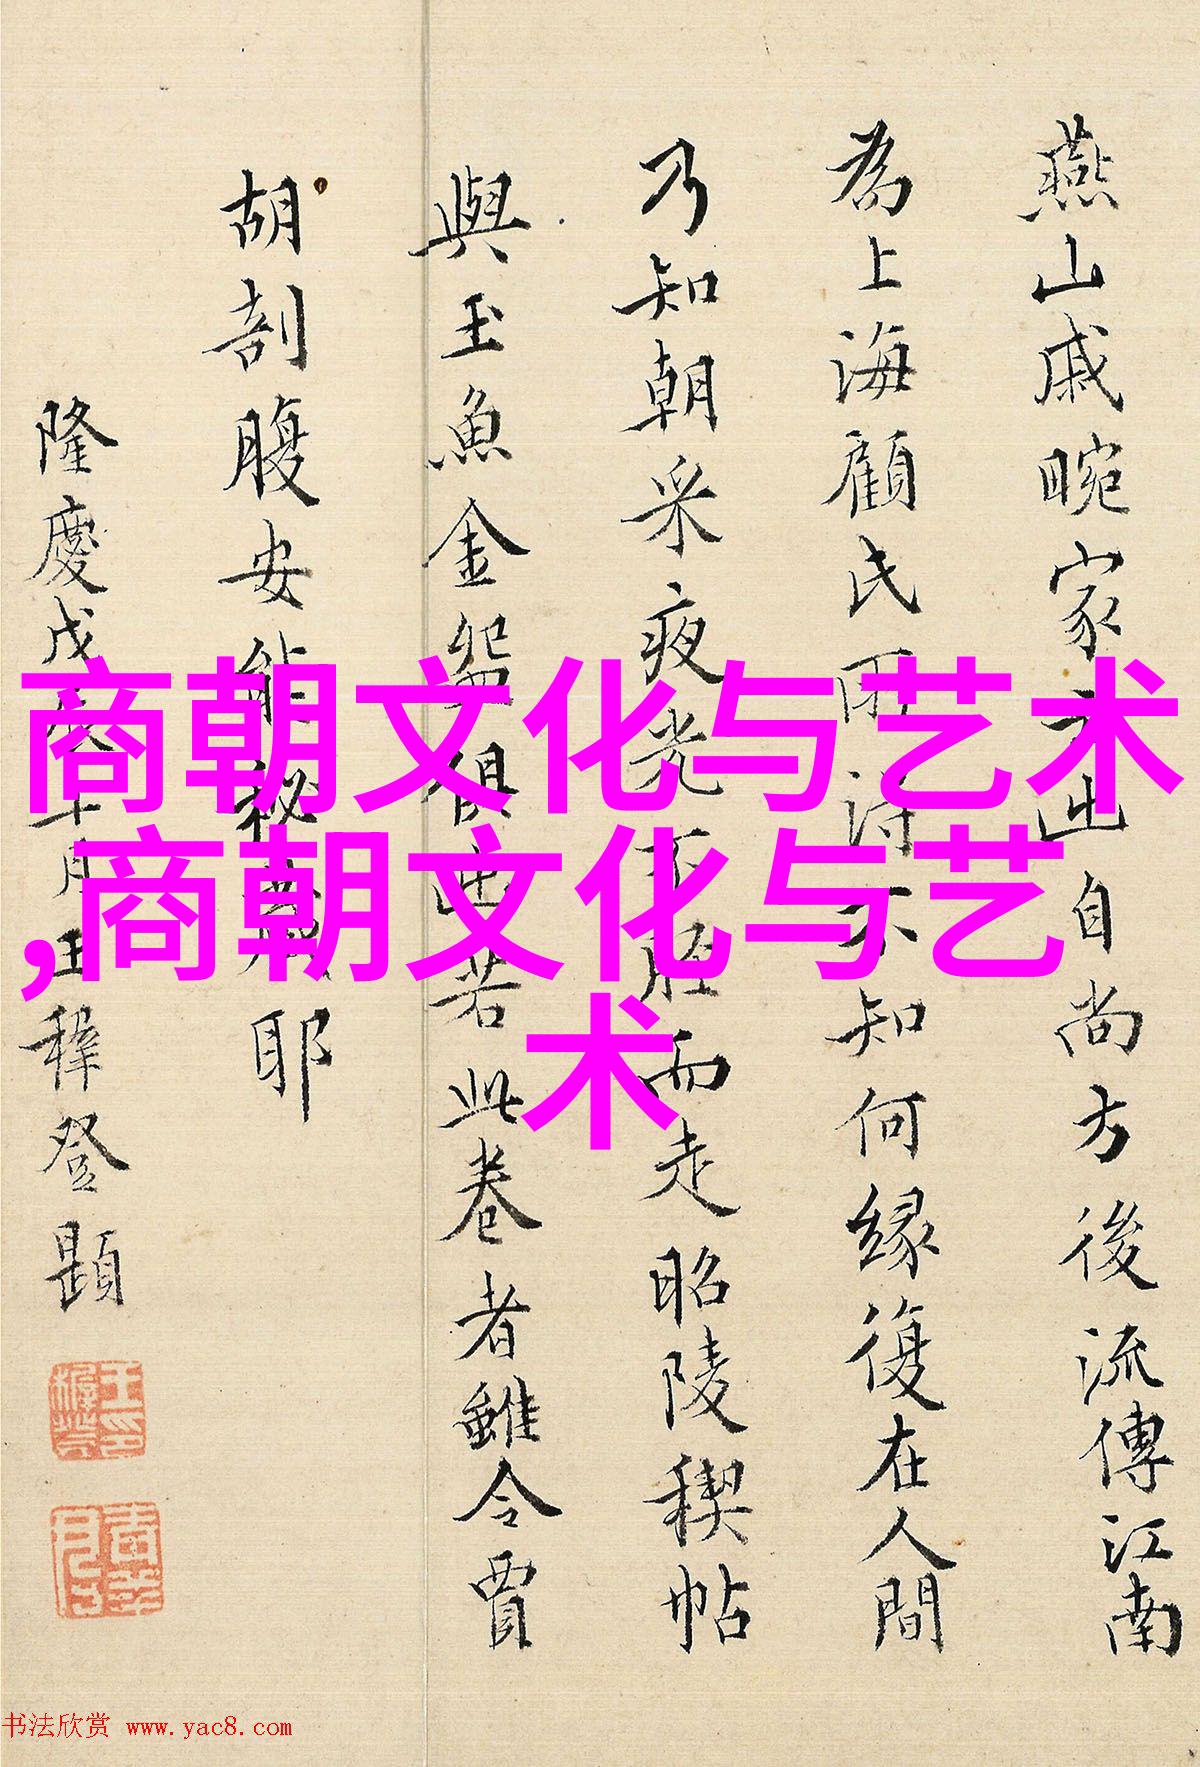 燕山戚畹家 出自尚方後流傳江南
為上海顧氏所得不知何緣復在人間
乃知朝采夜光不脛而走昭陵稧帖
與玉魚金盌俱出若此卷者雖令賈
胡剖腹安能祕 耶
隆慶戊辰 月王穉登題
商朝文化与艺术
,商朝文化与艺
术
书法欣赏 www.yac8.com